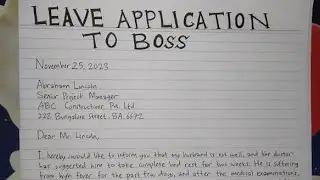 LEAVE APPLICATION
TO BOSS
November 25, 2023
Abraham Lincoln
Senior Project Manager
ABC Constructions Pvt. Ltd.
222, Bungalow Street, BA, 6692
Dear Mr. Lincoln,
I hereby would like to inform you that my husband is not well, and the doctor
has suggested him to take complete bed rest for two weeks. He is suffering
from high fever for the past few days, and after the medical examinations,